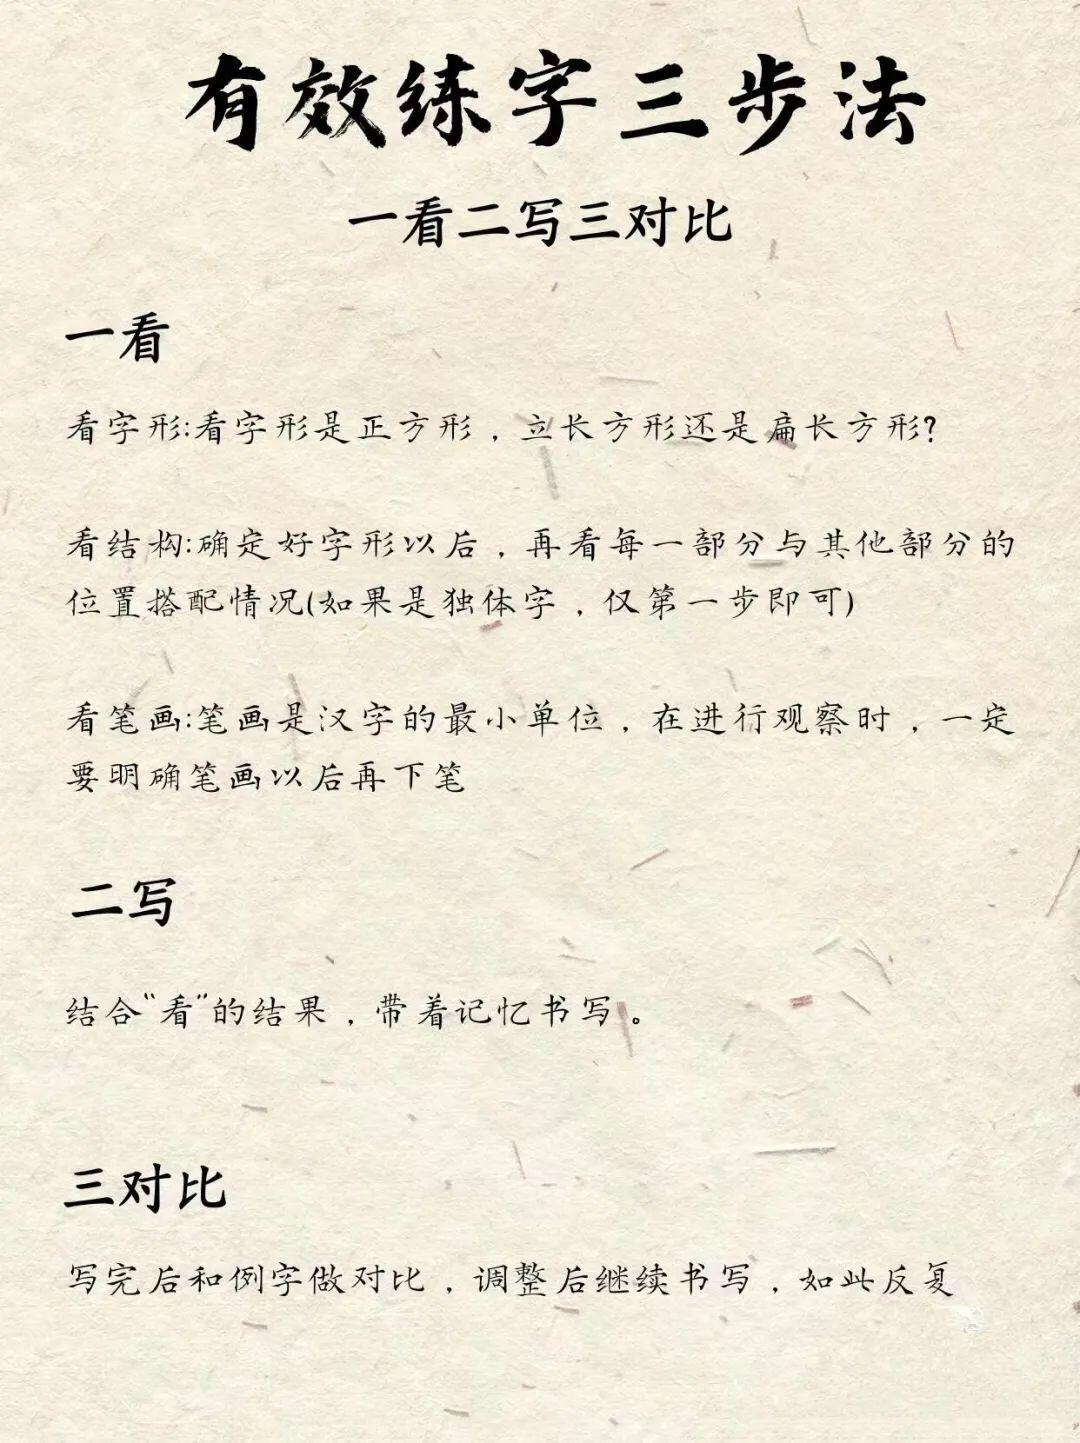 有效练字三步法
一看二写三对比
一看
看字形:看字形是正方形，立长方形还是扁长方形?
看结构:确定好字形以后，再看每一部分与其他部分的
位置搭配情况(如果是独体字，仅第一步即可)
看笔画:笔画是汉字的最小单位，在进行观察时，一定
要明确笔画以后再下笔
二写
结合“看”的结果，带着记忆书写。
三对比
写完后和例字做对比，调整后继续书写，如此反复